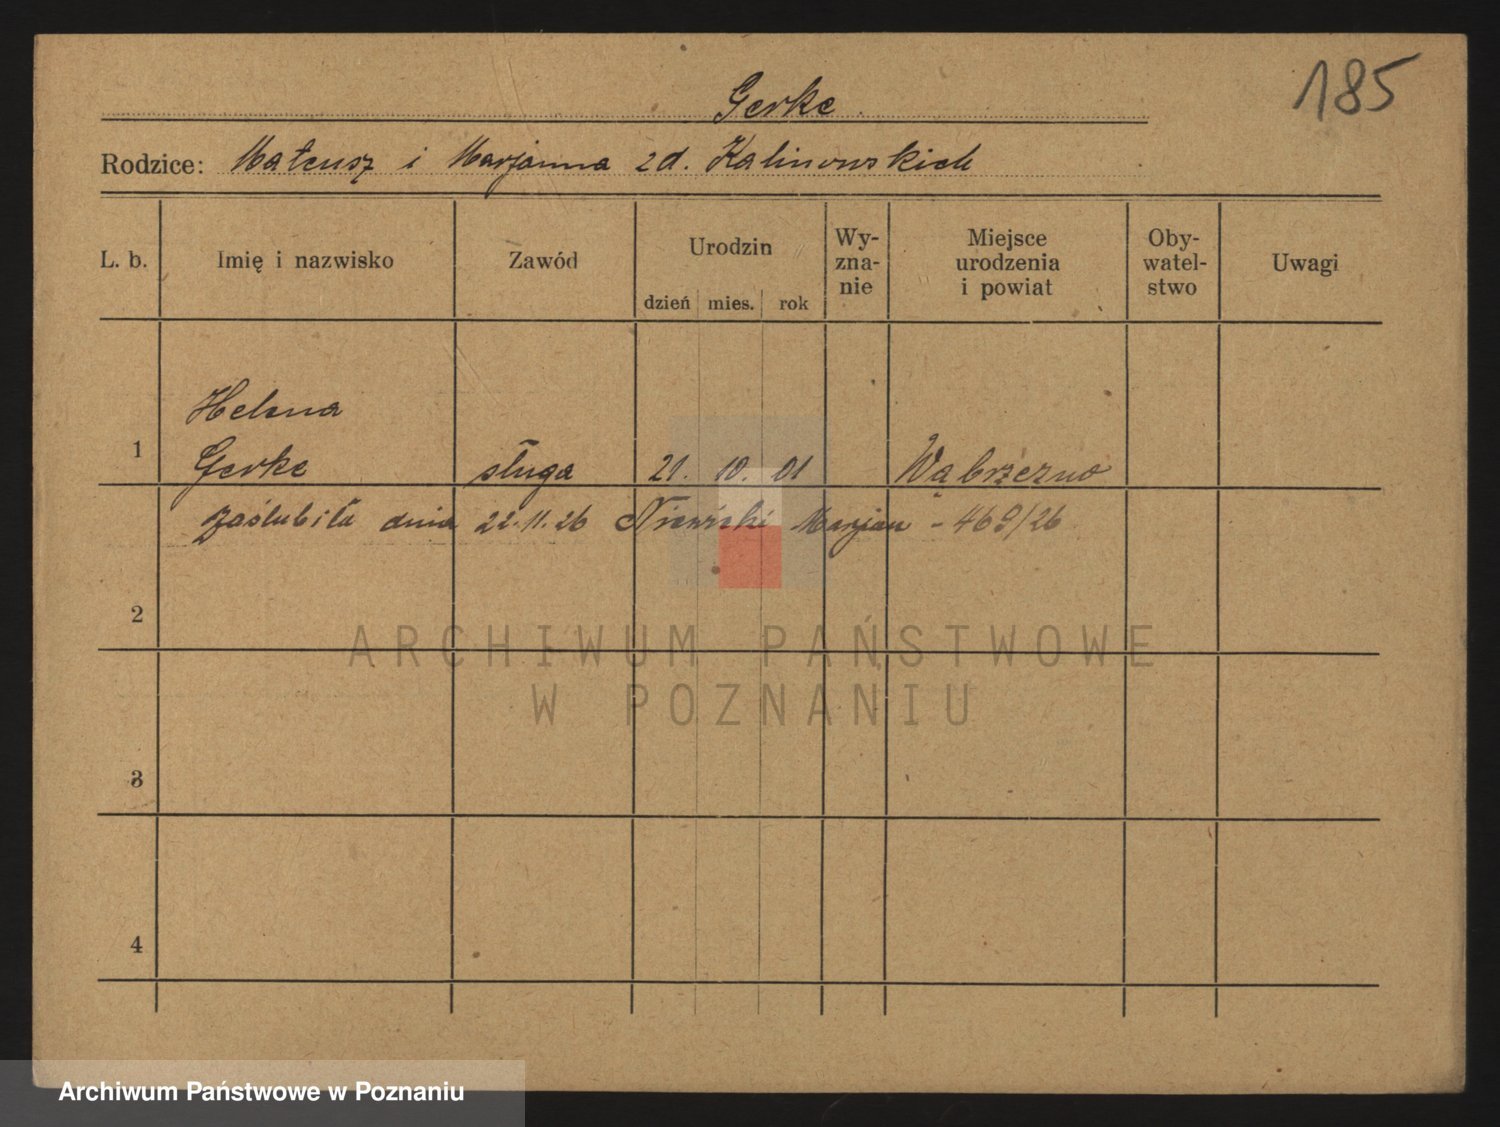 185
Gerke
Rodzice: Mateusz i Marjanna zd. Kalinowskich
L. b. Imię i nazwisko Zawód Urodzin dzień mies. rok Wy-zna-nie Miejsce urodzenia i powiat Oby-watel-stwo Uwagi
Helena
1 Gerke sługa 21. 10. 01 Wąbrzeźno
zaślubiła dnia 22.11.26 Marjan - 469/26
2
ARCHIWUM PAŃSTWOWE
W POZNANIU
3
4
Archiwum Państwowe w Poznaniu